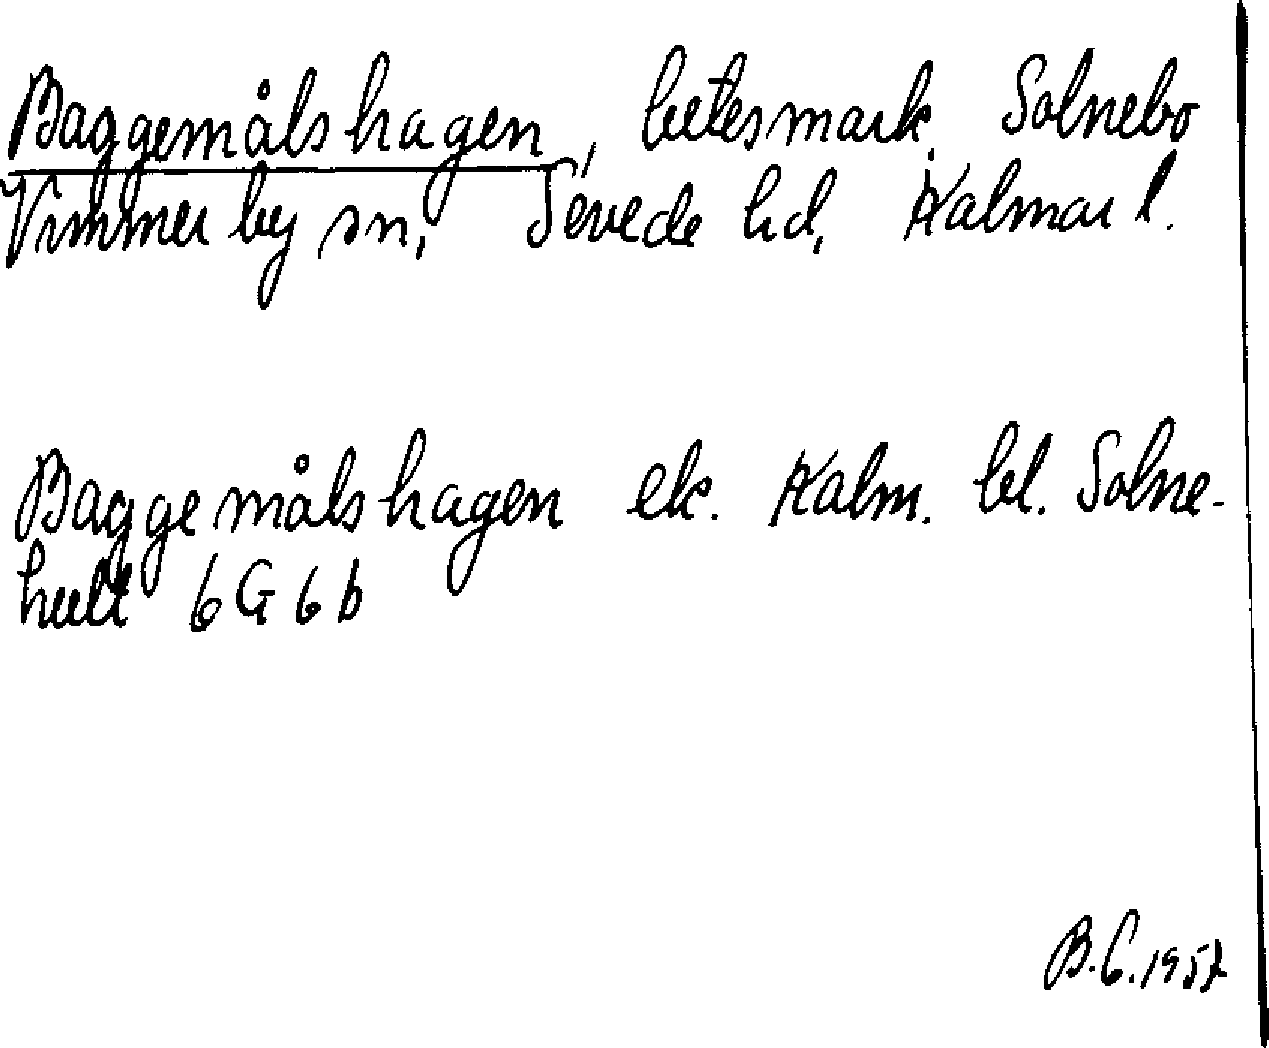 Baggemålshagen, betesmark, Solnebo
Vimmerby sn, Sevede hd, Kalmar l.
Baggemålshagen ek. Kalm. bl. Solne-
hult 6G6b
B.C. 1957